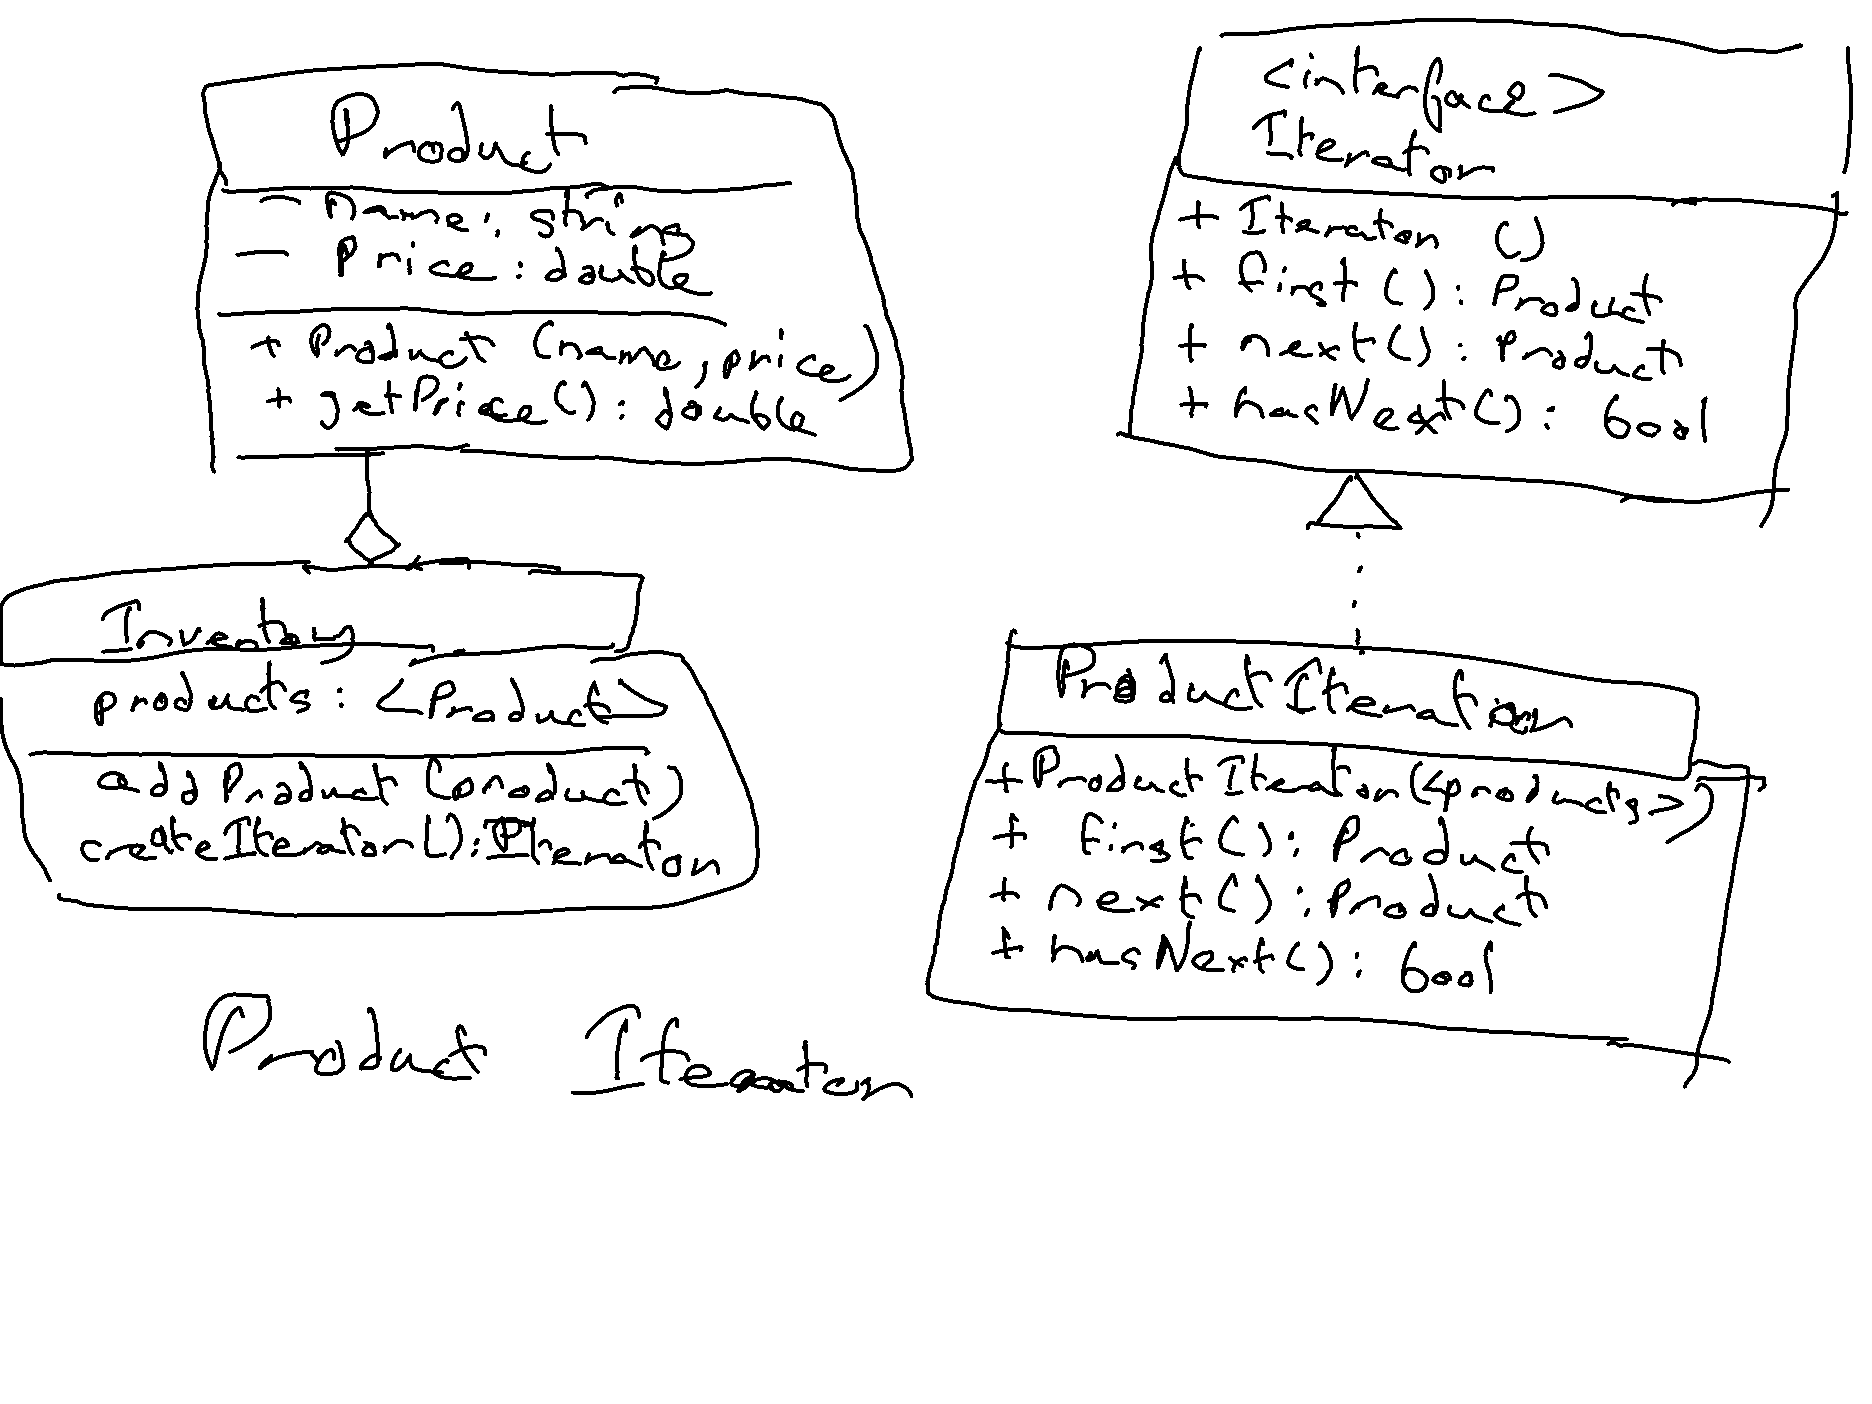 Product
- name: string
- Price: double
+ Product (name, price)
+ getPrice(): double
Inventory
products: <Product>
addProduct (product)
createIterator(): Iterator
<interface>
Iterator
+ Iterator ()
+ first(): Product
+ next(): Product
+ hasNext(): bool
ProductIterator
+ ProductIterator(<products>)
+ first(): Product
+ next(): Product
+ hasNext(): bool
Product Iterator